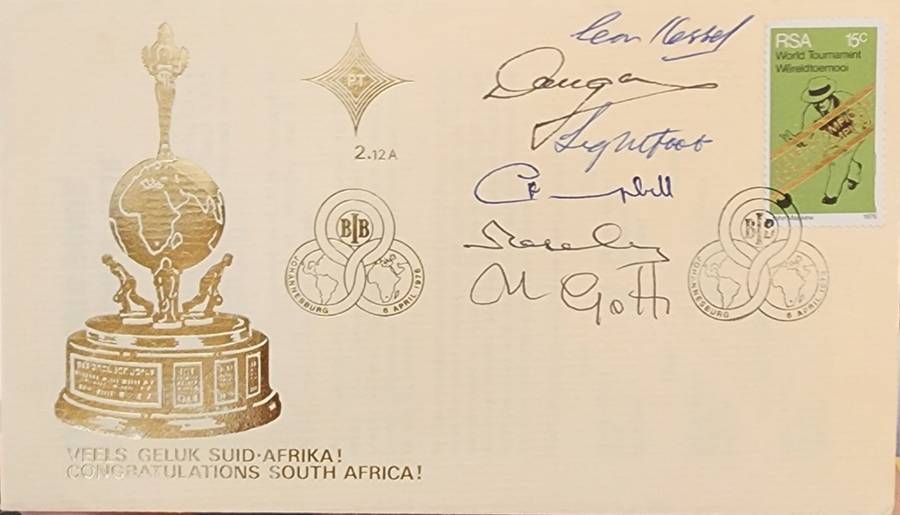 PT
2.12A
Leon Kessel
Lightfoot
Campbell
M Gott
RSA 15c
World Tournament
Wêreldtoernooi
1976
BIB
JOHANNESBURG 6 APRIL 1976
BIB
JOHANNESBURG 6 APRIL 1976
VEELS GELUK SUID-AFRIKA!
CONGRATULATIONS SOUTH AFRICA!